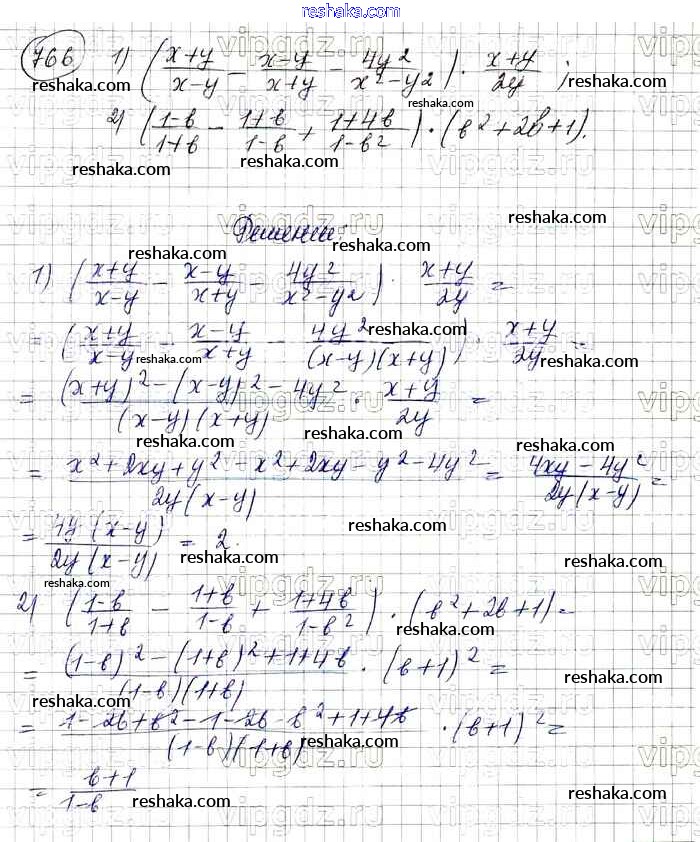 reshaka.com
766 1) ((x+y)/(x-y) - (x-y)/(x+y) - 4y²/(x²-y²)) · (x+y)/2y ;
2) ((1-b)/(1+b) - (1+b)/(1-b) + (1+4b)/(1-b²)) · (b²+2b+1).
Решение:
1) ((x+y)/(x-y) - (x-y)/(x+y) - 4y²/(x²-y²)) · (x+y)/2y =
= ((x+y)/(x-y) - (x-y)/(x+y) - 4y²/((x-y)(x+y))) · (x+y)/2y =
= ((x+y)²-(x-y)²-4y²)/((x-y)(x+y)) · (x+y)/2y =
= (x²+2xy+y²-x²+2xy-y²-4y²)/(2y(x-y)) = (4xy-4y²)/(2y(x-y)) =
= 4y(x-y)/(2y(x-y)) = 2.
2) ((1-b)/(1+b) - (1+b)/(1-b) + (1+4b)/(1-b²)) · (b²+2b+1) =
= ((1-b)²-(1+b)²+1+4b)/((1-b)(1+b)) · (b+1)² =
= (1-2b+b²-1-2b-b²+1+4b)/((1-b)(1+b)) · (b+1)² =
= (b+1)/(1-b)
reshaka.com
vipgdz.ru